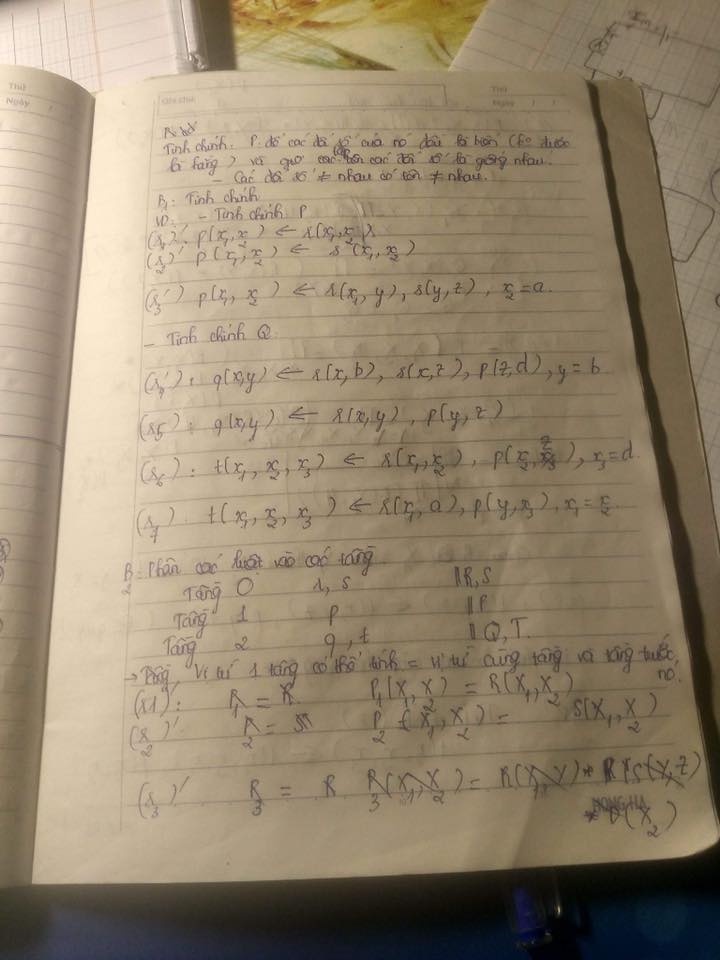 Thứ
Ngày
Thứ
Ngày / /
Tinh chỉnh. P. đó các đối số của nó đều là biến (ko được
là hằng) và giữ các tên các đối số là giống nhau.
- Các đối số ≠ nhau có tên ≠ nhau.
B1: Tinh chỉnh
VD: - Tinh chỉnh P
(r1)': p(x1, x2) ← r(x1, x2)
(r2)' p(x1, x2) ← s(x1, x2)
(r3') p(x1, x2) ← r(x1, y), s(y, z), x2 = a.
- Tinh chỉnh Q.
(r4'): q(x,y) ← r(x,b), s(x,z), p(z,d), y = b
(r5): q(x,y) ← r(x,y), p(y,z)
(r6): t(x1, x2, x3) ← r(x1, x2), p(x2, z), x3 = d.
(r7). t(x1, x2, x3) ← r(x1, a), p(y, x3), x1 = x2.
B2: Phân các luật vào các tầng.
Tầng 0 r, s || R, S
Tầng 1 p || P
Tầng 2 q, t || Q, T.
→ Vị từ 1 tầng có thể tính = vị từ cùng tầng và tầng trước
nó.
(r1)': R1 = R P1(X1, X2) = R(X1, X2)
(r2)' R2 = S P2(X1, X2) = S(X1, X2)
(r3)' R3 = R R3(X1, X2) = R(X1, Y) * S(Y, Z)
* D(X2)